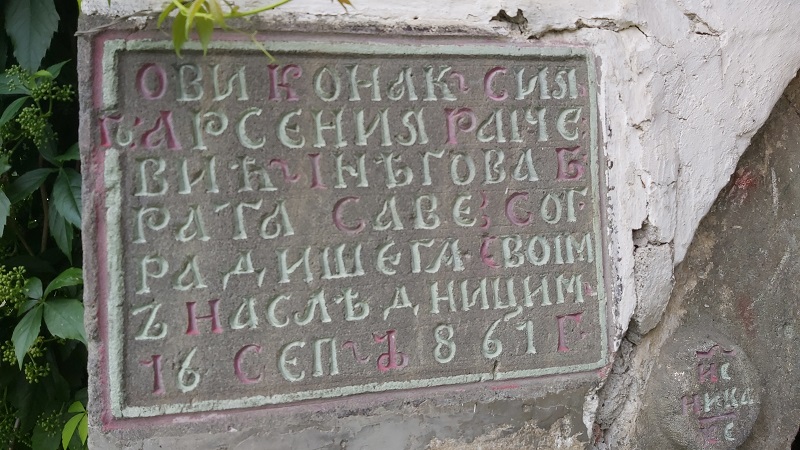 ОВИ КОНАК СИЯ
АРСЕНИЯ РАІЧЕ
ВИЋ І НѢГОВА Б
РАТА САВЕ СОГ
РАДИШЕГА СВОІМ
Ъ НАСЛѢДНИЦИМ
16 СЕП 1861 Г
ИС
НИКА